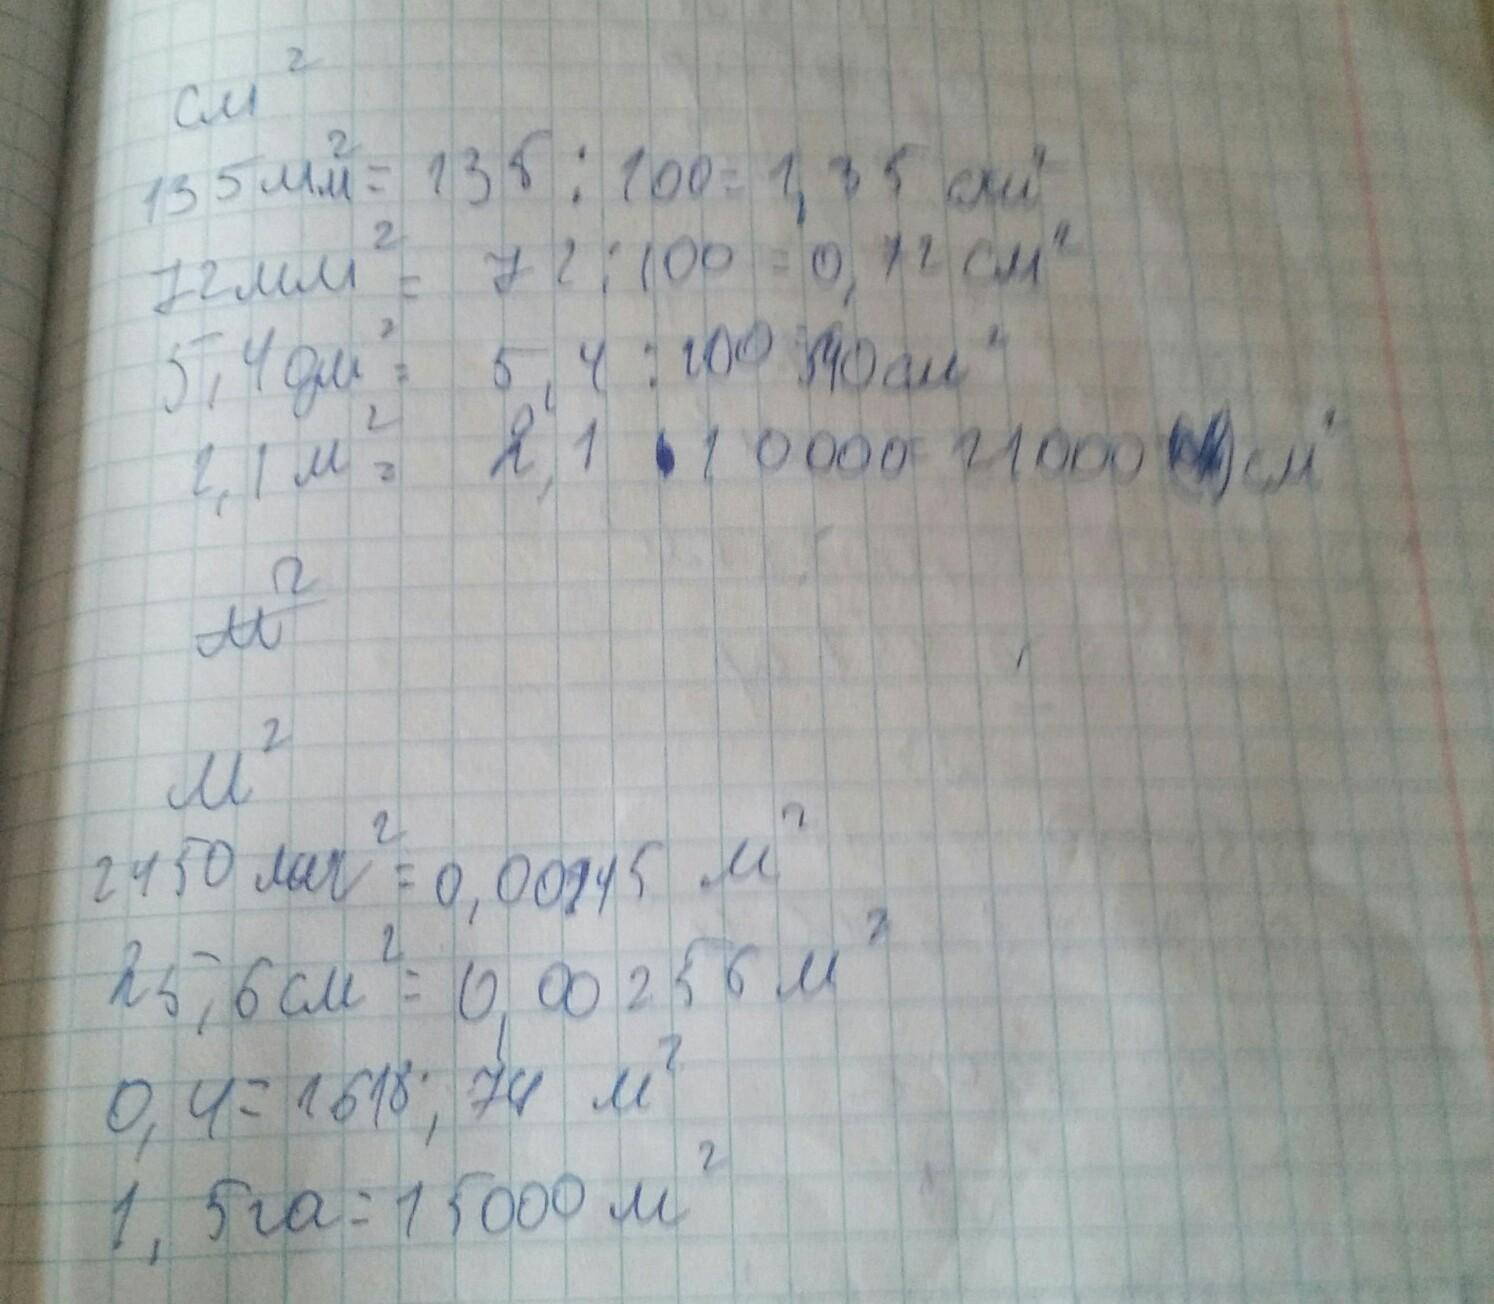 см²
135мм² = 135 : 100 = 1,35 см²
72мм² = 72 : 100 = 0,72 см²
5,4дм² = 5,4 : 100 540 см²
2,1м² = 2,1 · 10000 = 21000 см²
м²
м²
2450 мм² = 0,00245 м²
25,6см² = 0,00256 м²
0,4 = 1618,74 м²
1,5га = 15000 м²